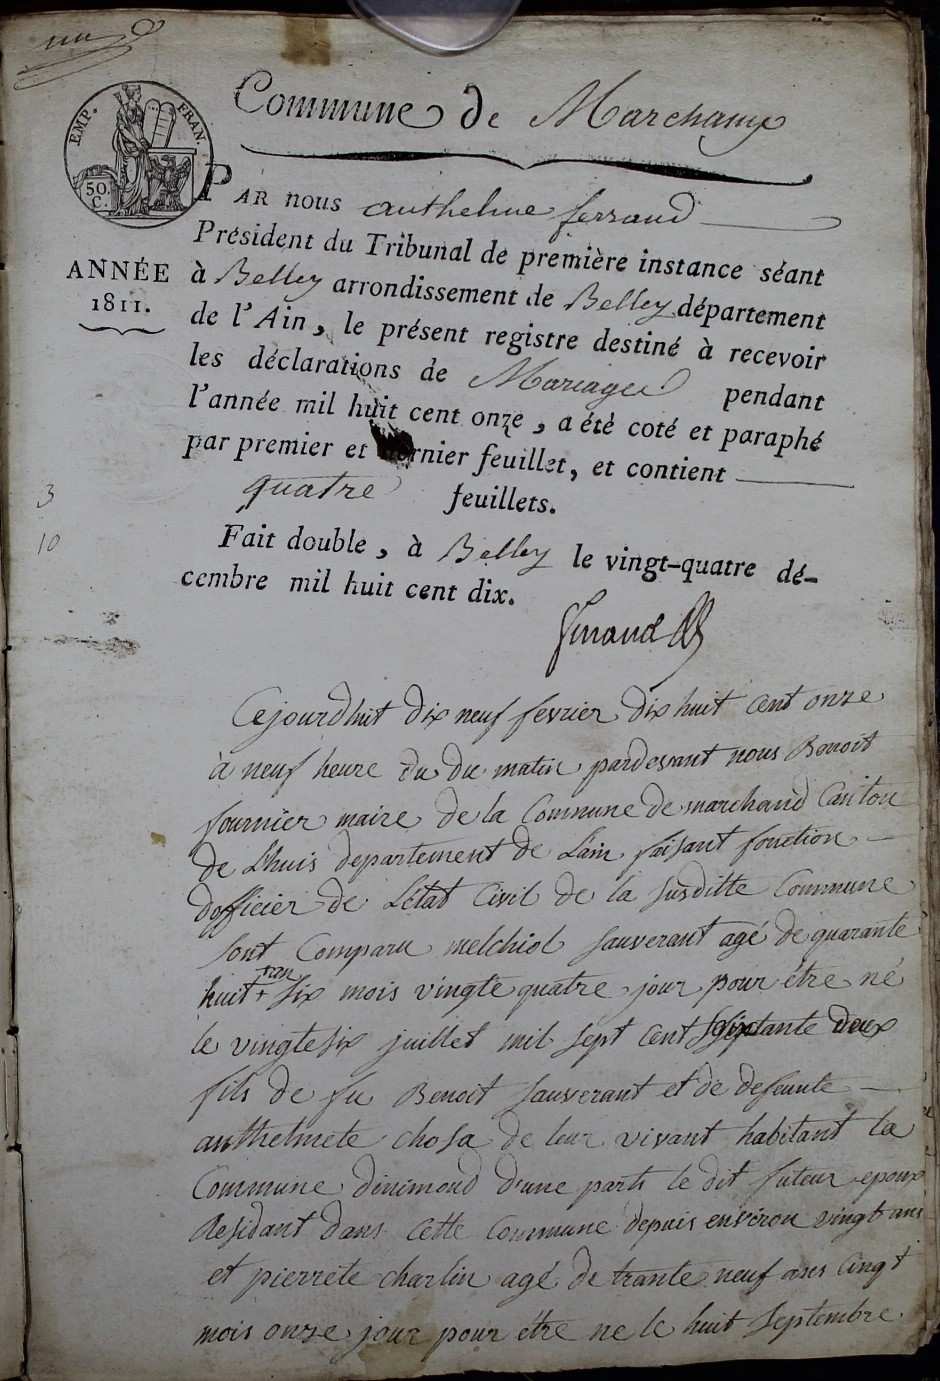 EMP. FRAN.
50.
C.
ANNÉE
1811.
3
10
Commune de Marchamp
PAR nous anthelme ferrand
Président du Tribunal de première instance séant
à Belley arrondissement de Belley département
de l'Ain, le présent registre destiné à recevoir
les déclarations de Mariages pendant
l'année mil huit cent onze, a été coté et paraphé
par premier et dernier feuillet, et contient
quatre feuillets.
Fait double, à Belley le vingt-quatre dé-
cembre mil huit cent dix.
Cejourdhuit dix neuf fevrier dix huit cent onze
à neuf heure du du matin pardevant nous Benoit
fournier maire de la Commune de marchand Canton
de Lhuis departement de Lain faisant fonction
dofficier de Létat Civil de la susditte Commune
sont Comparu melchiol sauverant agé de quarante
huit + six mois vingte quatre jour pour être né
le vingtesix juillet mil sept cent deux
fils de fu Benoit sauverant et de defeunte
anthelmete chosa de leur vivant habitant la
Commune dinimond d'une parts le dit futeur epoux
Residant dans cette Commune depuis environ vingt ans
et pierrete charlin agé de trante neuf ans Cingt
mois onze jour pour être ne le huit septembre